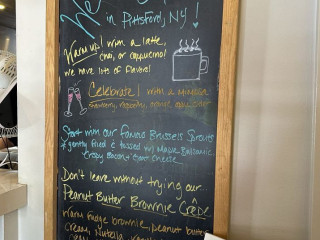 in Pittsford, NY!
Warm up! with a latte,
chai, or cappuccino!
We have lots of flavors!
Celebrate! with a Mimosa
Start with our famous Brussels Sprouts
gently fried & tossed w/ Maple Balsamic
Crispy Bacon & Goat Cheese
Don't leave without trying our
Peanut Butter Brownie Crêpe
Warm fudge brownie, peanut butter
Nutella